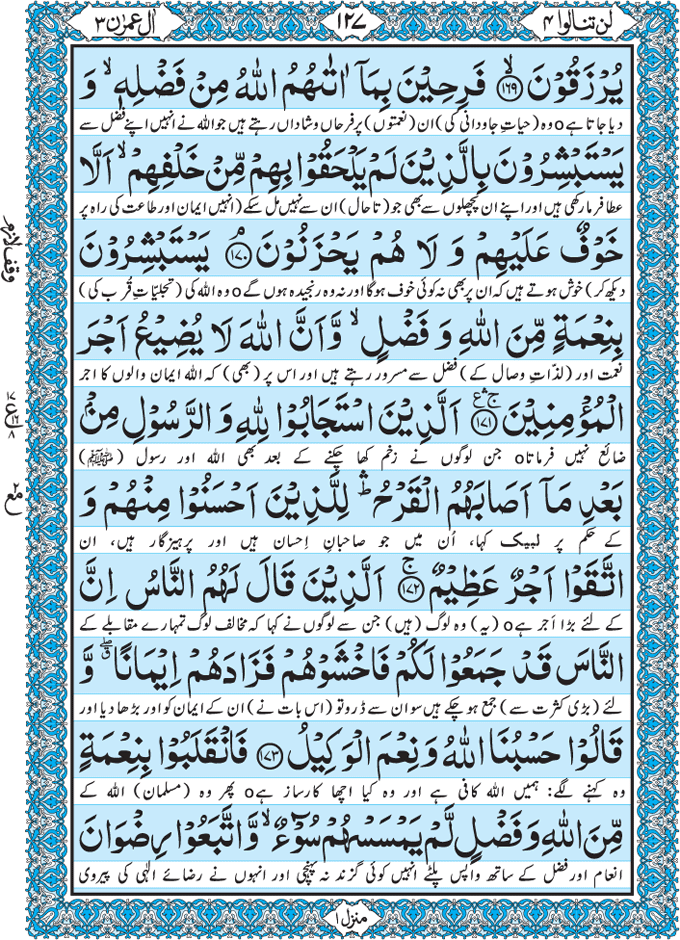 لن تنالوا ۴
۱۲۷
اٰل عمرٰن ۳
يُرْزَقُوْنَ ﴿۱۶۹﴾ۙ فَرِحِيْنَ بِمَاۤ اٰتٰىهُمُ اللّٰهُ مِنْ فَضْلِهٖ ۙ وَ
دیا جاتا ہے o وہ (حیاتِ جاودانی کی) ان (نعمتوں) پر فرحاں و شاداں رہتے ہیں جو اللہ نے انہیں اپنے فضل سے
يَسْتَبْشِرُوْنَ بِالَّذِيْنَ لَمْ يَلْحَقُوْا بِهِمْ مِّنْ خَلْفِهِمْ ۙ اَلَّا
عطا فرما رکھی ہیں اور اپنے ان پچھلوں سے بھی جو (تاحال) ان سے نہیں مل سکے (انہیں ایمان اور طاعت کی راہ پر
خَوْفٌ عَلَيْهِمْ وَ لَا هُمْ يَحْزَنُوْنَ ﴿۱۷۰﴾ۘ يَسْتَبْشِرُوْنَ
دیکھ کر) خوش ہوتے ہیں کہ ان پر بھی نہ کوئی خوف ہوگا اور نہ وہ رنجیدہ ہوں گے o وہ اللہ کی (تجلیاتِ قُرب کی)
بِنِعْمَةٍ مِّنَ اللّٰهِ وَ فَضْلٍ ۙ وَّ اَنَّ اللّٰهَ لَا يُضِيْعُ اَجْرَ
نعمت اور (لذاتِ وصال کے) فضل سے مسرور رہتے ہیں اور اس پر (بھی) کہ اللہ ایمان والوں کا اجر
الْمُؤْمِنِيْنَ ﴿۱۷۱﴾ۚۛ اَلَّذِيْنَ اسْتَجَابُوْا لِلّٰهِ وَ الرَّسُوْلِ مِنْۢ
ضائع نہیں فرماتا o جن لوگوں نے زخم کھا چکنے کے بعد بھی اللہ اور رسول (ﷺ)
بَعْدِ مَاۤ اَصَابَهُمُ الْقَرْحُ ۛؕ لِلَّذِيْنَ اَحْسَنُوْا مِنْهُمْ وَ
کے حکم پر لبیک کہا، اُن میں جو صاحبانِ اِحسان ہیں اور پرہیزگار ہیں، ان
اتَّقَوْا اَجْرٌ عَظِيْمٌ ﴿۱۷۲﴾ۚ اَلَّذِيْنَ قَالَ لَهُمُ النَّاسُ اِنَّ
کے لئے بڑا اَجر ہے o (یہ) وہ لوگ (ہیں) جن سے لوگوں نے کہا کہ مخالف لوگ تمہارے مقابلے کے
النَّاسَ قَدْ جَمَعُوْا لَكُمْ فَاخْشَوْهُمْ فَزَادَهُمْ اِيْمَانًا ۖۗ وَّ
لئے (بڑی کثرت سے) جمع ہو چکے ہیں سو ان سے ڈرو تو (اس بات نے) ان کے ایمان کو اور بڑھا دیا اور
قَالُوْا حَسْبُنَا اللّٰهُ وَ نِعْمَ الْوَكِيْلُ ﴿۱۷۳﴾ فَانْقَلَبُوْا بِنِعْمَةٍ
وہ کہنے لگے: ہمیں اللہ کافی ہے اور وہ کیا اچھا کارساز ہے o پھر وہ (مسلمان) اللہ کے
مِّنَ اللّٰهِ وَ فَضْلٍ لَّمْ يَمْسَسْهُمْ سُوْٓءٌ ۙ وَّ اتَّبَعُوْا رِضْوَانَ
انعام اور فضل کے ساتھ واپس پلٹے انہیں کوئی گزند نہ پہنچی اور انہوں نے رضائے الٰہی کی پیروی
منزل ۱
وقف لازم